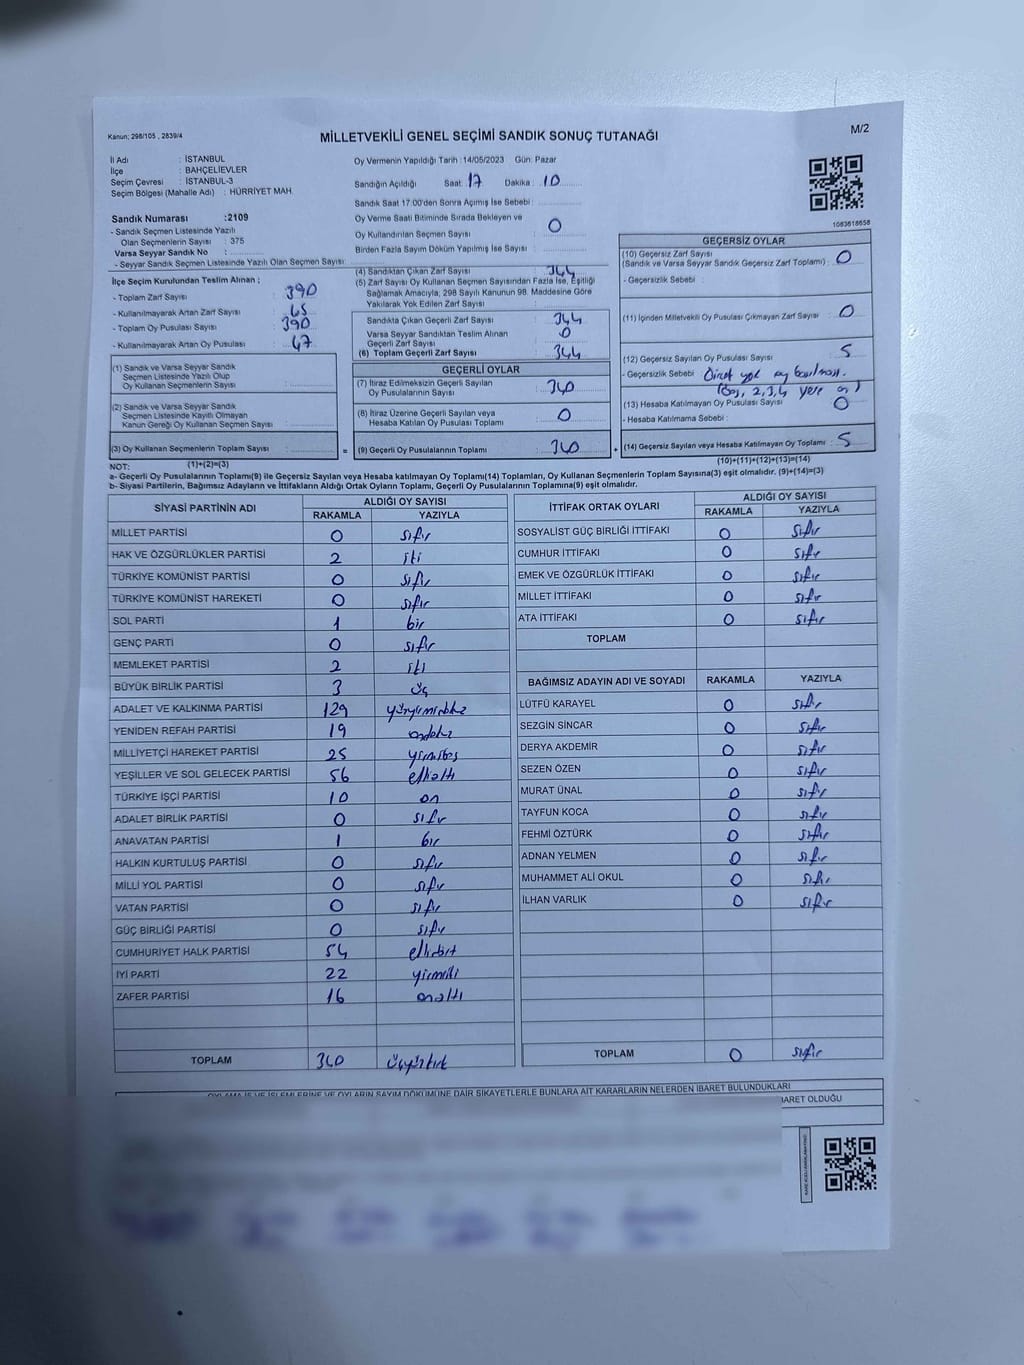 Kanun; 298/105 , 2839/4
MİLLETVEKİLİ GENEL SEÇİMİ SANDIK SONUÇ TUTANAĞI
M/2
İl Adı : İSTANBUL
İlçe : BAHÇELİEVLER
Seçim Çevresi : İSTANBUL-3
Seçim Bölgesi (Mahalle Adı) : HÜRRİYET MAH.
Sandık Numarası :2109
- Sandık Seçmen Listesinde Yazılı
Olan Seçmenlerin Sayısı : 375
Varsa Seyyar Sandık No :
- Seyyar Sandık Seçmen Listesinde Yazılı Olan Seçmen Sayısı:
Oy Vermenin Yapıldığı Tarih :14/05/2023 Gün: Pazar
Sandığın Açıldığı Saat: 17 Dakika : 10
Sandık Saat 17.00'den Sonra Açılmış İse Sebebi :
Oy Verme Saati Bitiminde Sırada Bekleyen ve
Oy Kullandırılan Seçmen Sayısı : 0
Birden Fazla Sayım Döküm Yapılmış İse Sayısı :
1083618658
İlçe Seçim Kurulundan Teslim Alınan ;
- Toplam Zarf Sayısı : 390
- Kullanılmayarak Artan Zarf Sayısı :
- Toplam Oy Pusulası Sayısı : 390
- Kullanılmayarak Artan Oy Pusulası : 47
(1) Sandık ve Varsa Seyyar Sandık
Seçmen Listesinde Yazılı Olup
Oy Kullanan Seçmenlerin Sayısı :
(2) Sandık ve Varsa Seyyar Sandık
Seçmen Listesinde Kayıtlı Olmayan
Kanun Gereği Oy Kullanan Seçmen Sayısı :
(3) Oy Kullanan Seçmenlerin Toplam Sayısı : =
(4) Sandıktan Çıkan Zarf Sayısı : 344
(5) Zarf Sayısı Oy Kullanan Seçmen Sayısından Fazla İse, Eşitliği
Sağlamak Amacıyla, 298 Sayılı Kanunun 98. Maddesine Göre
Yakılarak Yok Edilen Zarf Sayısı :
Sandıkta Çıkan Geçerli Zarf Sayısı : 344
Varsa Seyyar Sandıktan Teslim Alınan
Geçerli Zarf Sayısı : 0
(6) Toplam Geçerli Zarf Sayısı : 344
GEÇERLİ OYLAR
(7) İtiraz Edilmeksizin Geçerli Sayılan
Oy Pusulalarının Sayısı : 340
(8) İtiraz Üzerine Geçerli Sayılan veya
Hesaba Katılan Oy Pusulası Toplamı : 0
(9) Geçerli Oy Pusulalarının Toplamı : 340 +
GEÇERSİZ OYLAR
(10) Geçersiz Zarf Sayısı
(Sandık ve Varsa Seyyar Sandık Geçersiz Zarf Toplamı) : 0
- Geçersizlik Sebebi :
(11) İçinden Milletvekili Oy Pusulası Çıkmayan Zarf Sayısı : 0
(12) Geçersiz Sayılan Oy Pusulası Sayısı : 5
- Geçersizlik Sebebi :
(13) Hesaba Katılmayan Oy Pusulası Sayısı : 0
- Hesaba Katılmama Sebebi :
(14) Geçersiz Sayılan veya Hesaba Katılmayan Oy Toplamı : 5
NOT: (1)+(2)=(3) (10)+(11)+(12)+(13)=(14)
a- Geçerli Oy Pusulasının Toplamı(9) ile Geçersiz Sayılan veya Hesaba katılmayan Oy Toplamı(14) Toplamları, Oy Kullanan Seçmenlerin Toplam Sayısına(3) eşit olmalıdır. (9)+(14)=(3)
b- Siyasi Partilerin, Bağımsız Adayların ve İttifakların Aldığı Ortak Oyların Toplamı, Geçerli Oy Pusulalarının Toplamına(9) eşit olmalıdır.
SİYASİ PARTİNİN ADI ALDIĞI OY SAYISI
RAKAMLA YAZIYLA
MİLLET PARTİSİ 0 sıfır
HAK VE ÖZGÜRLÜKLER PARTİSİ 2 iki
TÜRKİYE KOMÜNİST PARTİSİ 0 sıfır
TÜRKİYE KOMÜNİST HAREKETİ 0 sıfır
SOL PARTİ 1 bir
GENÇ PARTİ 0 sıfır
MEMLEKET PARTİSİ 2 iki
BÜYÜK BİRLİK PARTİSİ 3 üç
ADALET VE KALKINMA PARTİSİ 129 yüzyirmidokuz
YENİDEN REFAH PARTİSİ 19 ondokuz
MİLLİYETÇİ HAREKET PARTİSİ 25 yirmibeş
YEŞİLLER VE SOL GELECEK PARTİSİ 56 ellialtı
TÜRKİYE İŞÇİ PARTİSİ 10 on
ADALET BİRLİK PARTİSİ 0 sıfır
ANAVATAN PARTİSİ 1 bir
HALKIN KURTULUŞ PARTİSİ 0 sıfır
MİLLİ YOL PARTİSİ 0 sıfır
VATAN PARTİSİ 0 sıfır
GÜÇ BİRLİĞİ PARTİSİ 0 sıfır
CUMHURİYET HALK PARTİSİ 54 ellidört
İYİ PARTİ 22 yirmiiki
ZAFER PARTİSİ 16 onaltı
TOPLAM 340 üçyüzkırk
İTTİFAK ORTAK OYLARI ALDIĞI OY SAYISI
RAKAMLA YAZIYLA
SOSYALİST GÜÇ BİRLİĞİ İTTİFAKI 0 sıfır
CUMHUR İTTİFAKI 0 sıfır
EMEK VE ÖZGÜRLÜK İTTİFAKI 0 sıfır
MİLLET İTTİFAKI 0 sıfır
ATA İTTİFAKI 0 sıfır
TOPLAM
BAĞIMSIZ ADAYIN ADI VE SOYADI RAKAMLA YAZIYLA
LÜTFÜ KARAYEL 0 sıfır
SEZGİN SİNCAR 0 sıfır
DERYA AKDEMİR 0 sıfır
SEZEN ÖZEN 0 sıfır
MURAT ÜNAL 0 sıfır
TAYFUN KOCA 0 sıfır
FEHMİ ÖZTÜRK 0 sıfır
ADNAN YELMEN 0 sıfır
MUHAMMET ALİ OKUL 0 sıfır
İLHAN VARLIK 0 sıfır
TOPLAM 0 sıfır
OYLAMA İŞ VE İŞLEMLERİNE VE OYLARIN SAYIM DÖKÜMÜNE DAİR ŞİKAYETLERLE BUNLARA AİT KARARLARIN NELERDEN İBARET BULUNDUKLARI
İBARET OLDUĞU